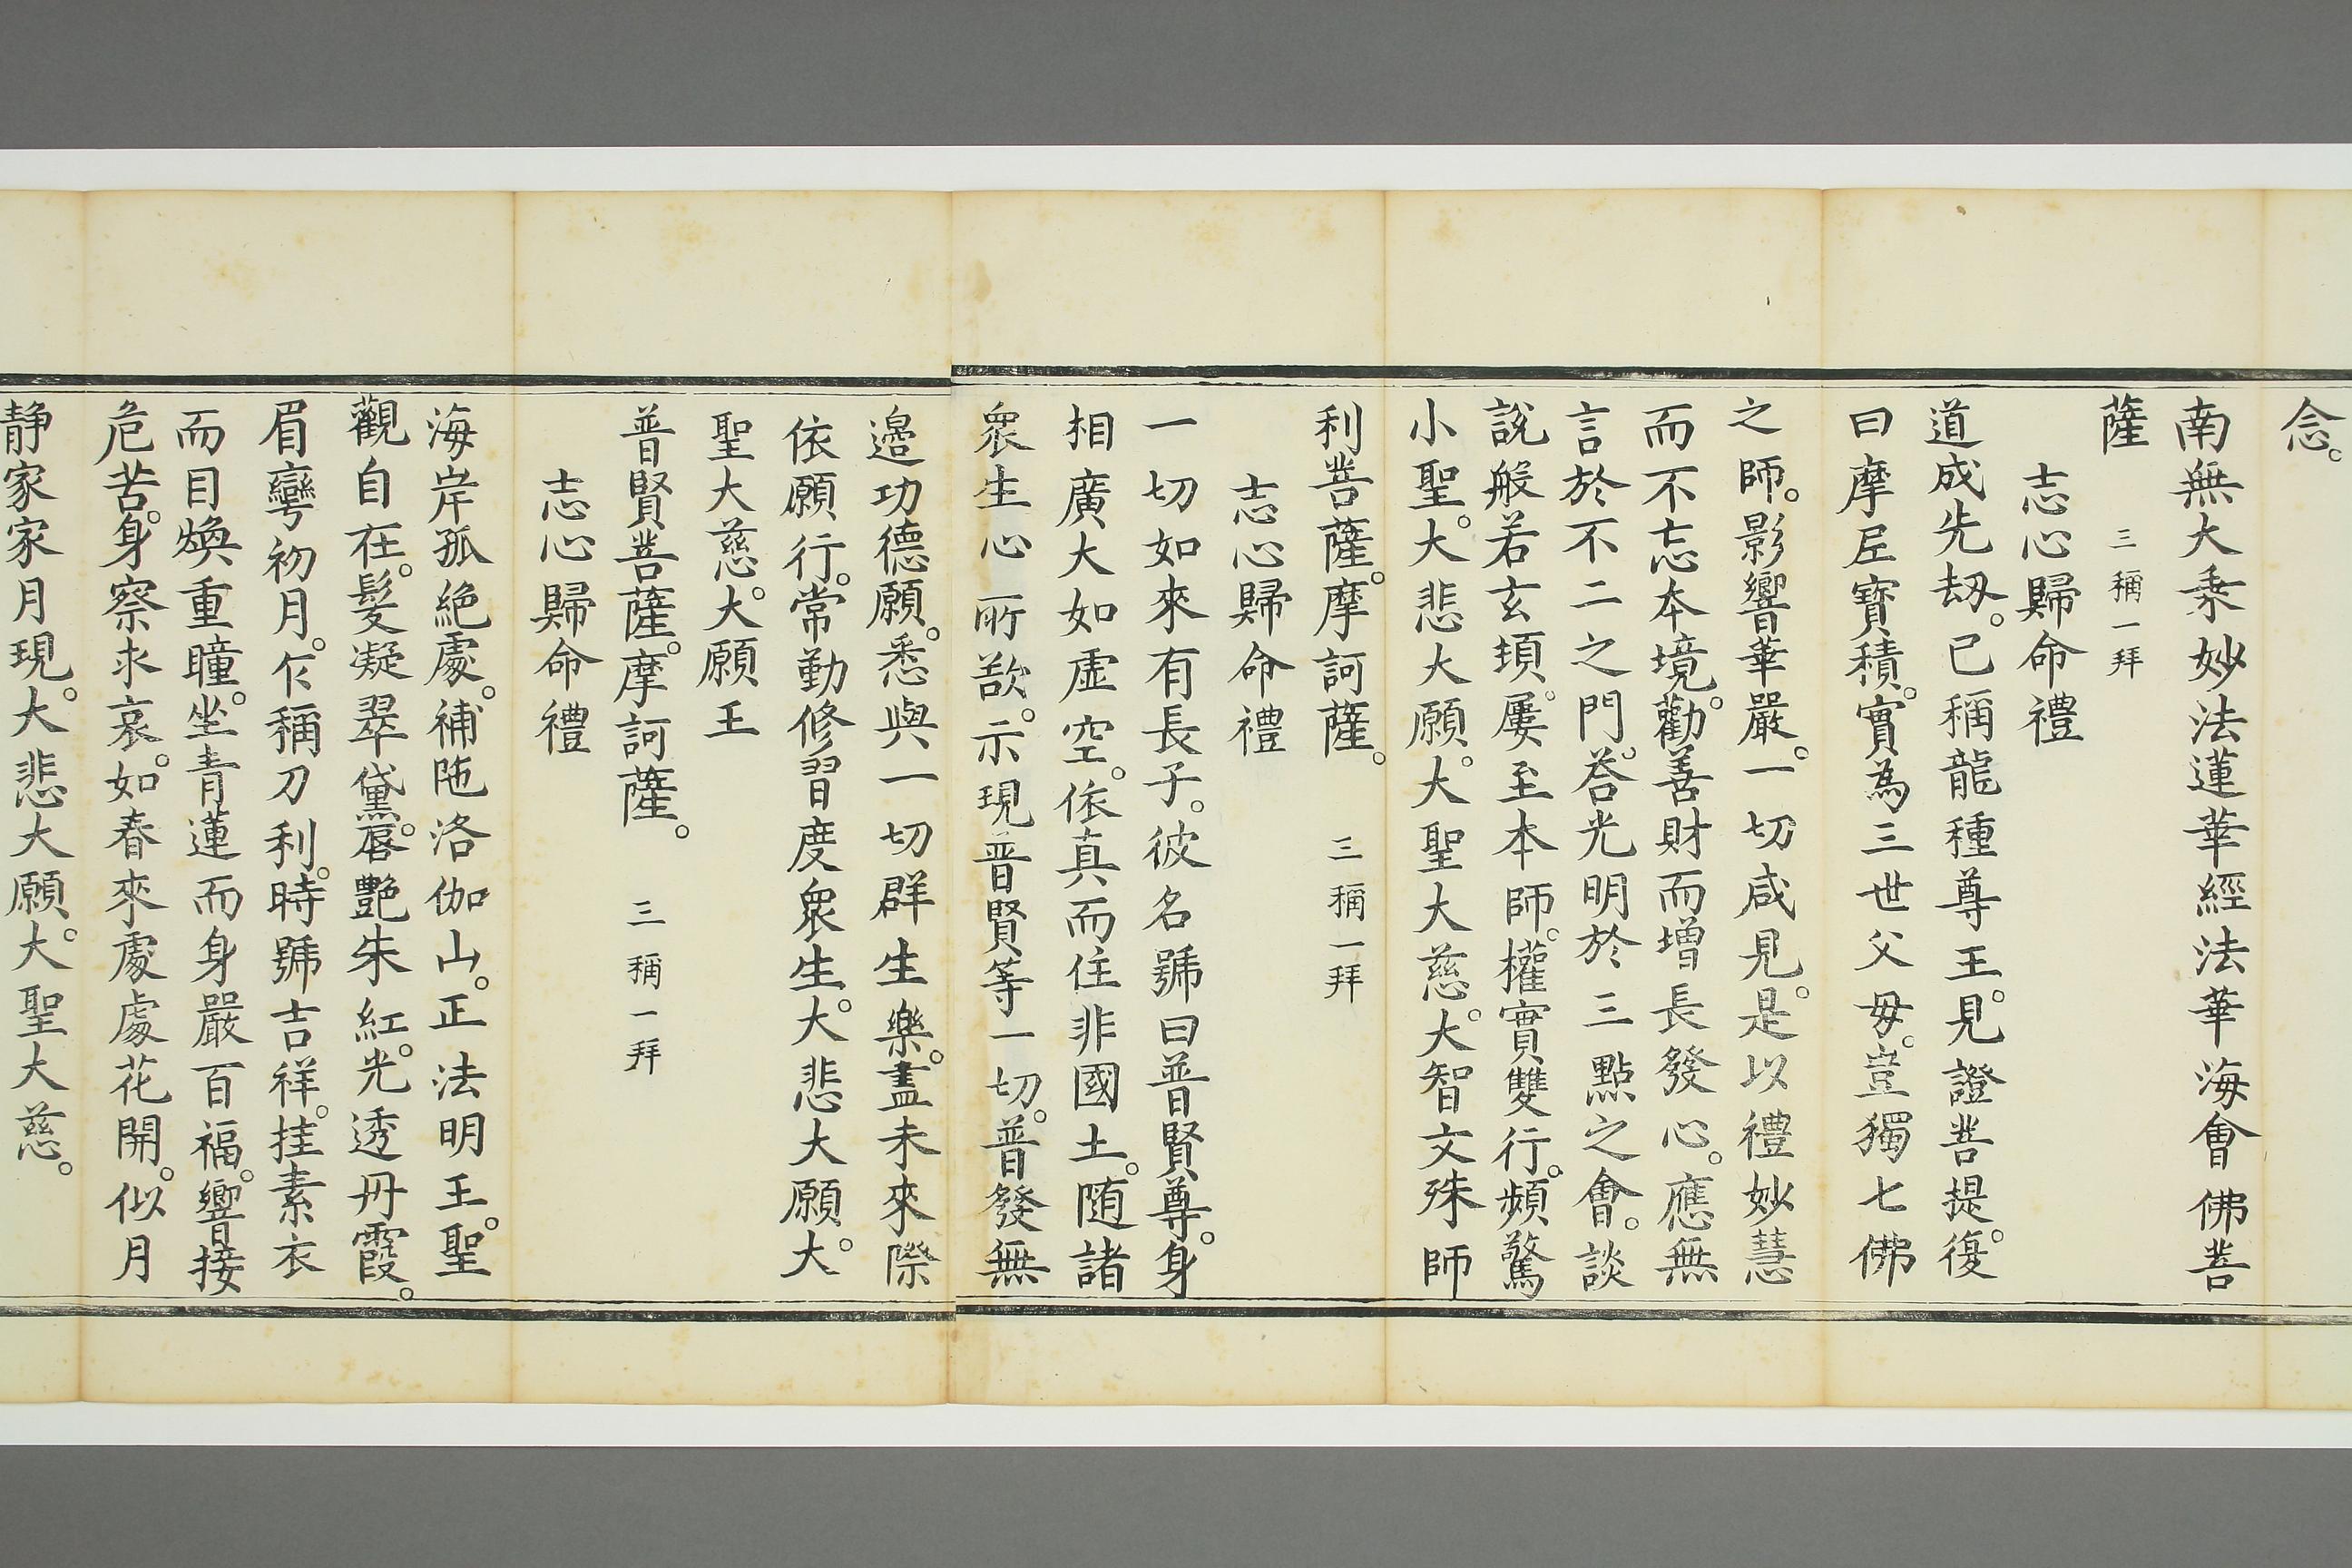 念。
南無大乗妙法蓮華經法華海會佛菩
薩　三稱一拜
志心歸命禮
道成先劫。已稱龍種尊王。見證菩提。復
曰摩尼寶積。實為三世父母。豈獨七佛
之師。影響華嚴。一切咸見。是以禮妙慧
而不忘本境。勸善財而增長發心。應無
言於不二之門。荅光明於三點之會。談
說般若玄頊。屢至本師。權實雙行。頻驚
小聖。大悲大願。大聖大慈。大智文殊師
利菩薩。摩訶薩。　三稱一拜
志心歸命禮
一切如來有長子。彼名號曰普賢尊。身
相廣大如虛空。依真而住非國土。随諸
衆生心所欲。示現普賢等一切。普發無
邉功德願。悉與一切群生樂。盡未來際
依願行。常勤修習度衆生。大悲大願。大
聖大慈。大願王
普賢菩薩。摩訶薩。　三稱一拜
志心歸命禮
海岸孤絶處。補陁洛伽山。正法明王。聖
觀自在。髮凝翠黛。唇艷朱紅。光透丹霞。
眉彎初月。乍稱刀利。時號吉祥。挂素衣
而目煥重瞳。坐青蓮而身嚴百福。響接
危苦。身察求哀。如春來處處花開。似月
静家家月現。大悲大願。大聖大慈。